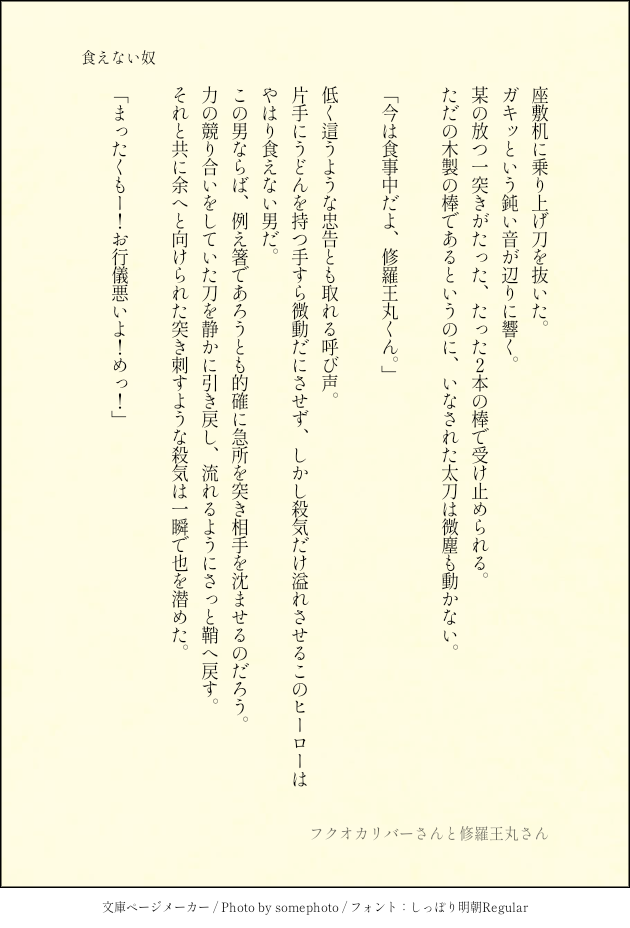 食えない奴
座敷机に乗り上げ刀を抜いた。
ガキッという鈍い音が辺りに響く。
某の放つ一突きがたった、たった2本の棒で受け止められる。
ただの木製の棒であるというのに、いなされた太刀は微塵も動かない。
「今は食事中だよ、修羅王丸くん。」
低く這うような忠告とも取れる呼び声。
片手にうどんを持つ手すら微動だにさせず、しかし殺気だけ溢れさせるこのヒーローは
やはり食えない男だ。
この男ならば、例え箸であろうとも的確に急所を突き相手を沈ませるのだろう。
力の競り合いをしていた刀を静かに引き戻し、流れるようにさっと鞘へ戻す。
それと共に余へと向けられた突き刺すような殺気は一瞬で也を潜めた。
「まったくもー！お行儀悪いよ！めっ！」
フクオカリバーさんと修羅王丸さん
文庫ページメーカー / Photo by somephoto / フォント：しっぽり明朝Regular